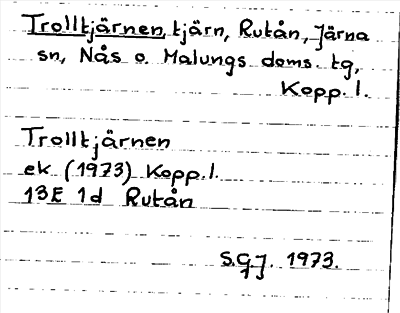 Trolltjärnen, tjärn, Rutån, Järna
sn, Nås o. Malungs doms. tg,
Kopp. l.
Trolltjärnen
ek (1973) Kopp. l.
13E 1d Rutån
S.G.J. 1973.